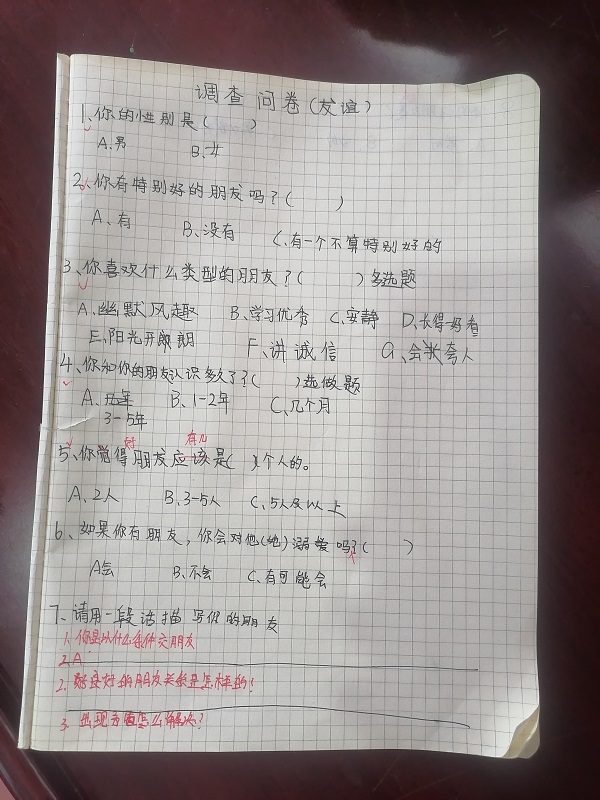 调查问卷(友谊)
1、你的性别是( )
A、男 B、女
2、你有特别好的朋友吗?( )
A、有 B、没有 C、有一个不算特别好的
3、你喜欢什么类型的朋友?( )多选题
A、幽默风趣 B、学习优秀 C、安静 D、长得好看
E、阳光开朗 F、讲诚信 G、会夸人
4、你和你的朋友认识多久了?( )选做题
A、几年 B、1-2年 C、几个月
3-5年
好 有几
5、你觉得朋友应该是( )个人的。
A、2人 B、3-5人 C、5人及以上
6、如果你有朋友,你会对他(她)溺爱吗?( )
A会 B、不会 C、有可能会
7、请用一段话描写你的朋友
1. 你是以什么条件交朋友
2.A
2. 良好的朋友关系是怎样的?
3. 出现矛盾怎么解决?